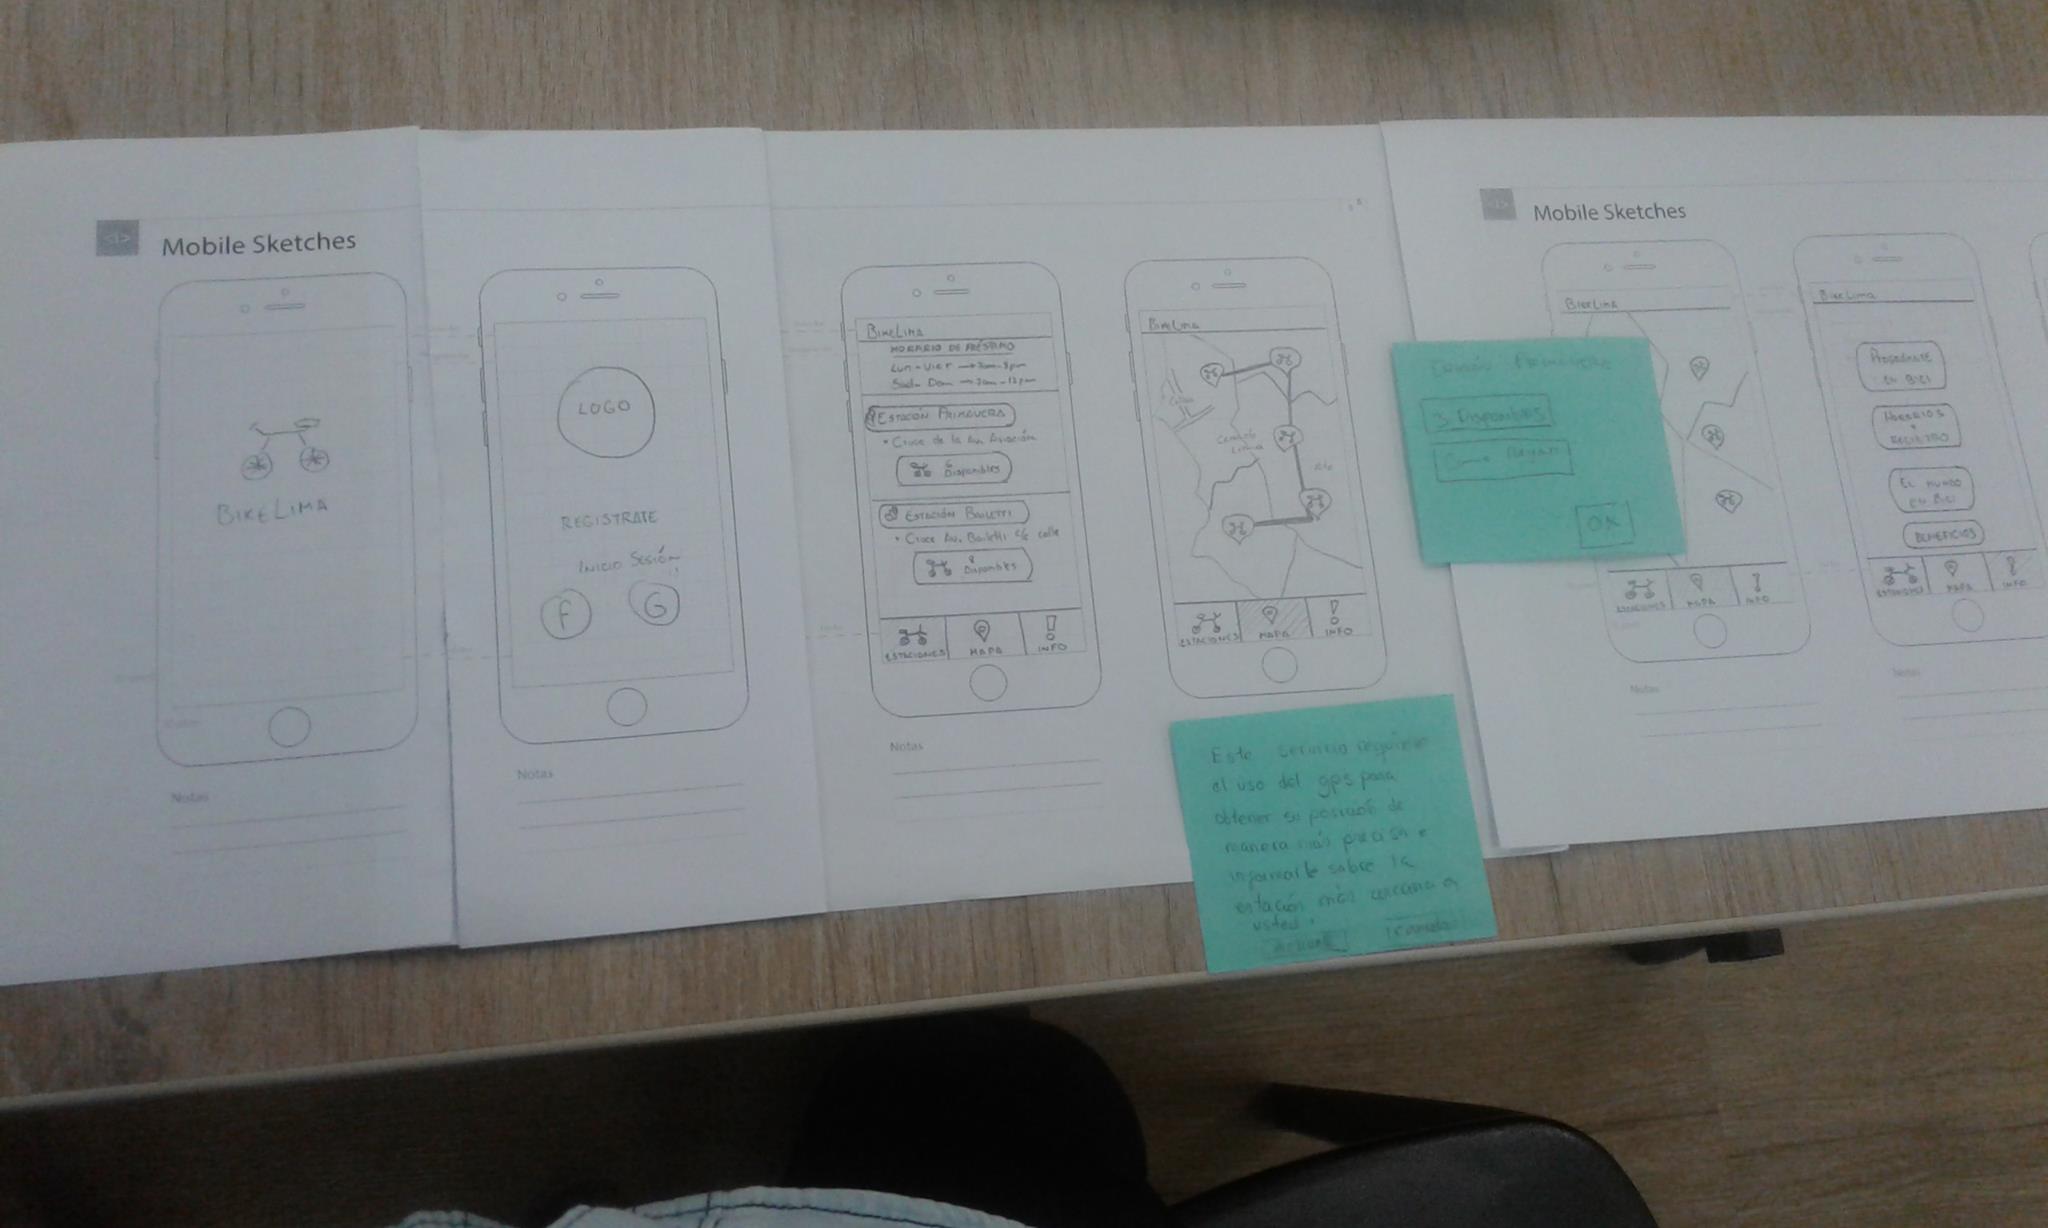 Mobile Sketches
BIKELIMA
Notas
LOGO
REGISTRATE
INICIO SESIÓN
F
G
Notas
BIKELIMA
HORARIO DE PRÉSTAMO
ESTACIÓN PRIMAVERA
• Cruce de la Av. Aviación
6
Disponibles
ESTACIÓN BAILETTI
• Cruce Av. Bailetti c/c calle
8
Disponibles
ESTACIONES
MAPA
INFO
Notas
BIKELIMA
ESTACIONES
MAPA
INFO
Este servicio requiere
el uso del gps para
obtener su posición de
manera más precisa e
informarle sobre la
estación más cercana a
usted.
PRIMAVERA
3 Disponibles
Como llegar
OK
Mobile Sketches
BIKELIMA
ESTACIONES
MAPA
INFO
Notas
BIKELIMA
EN BICI
HORARIOS
Y
REGISTRO
EL MUNDO
EN BICI
BENEFICIOS
ESTACIONES
MAPA
INFO
Notas